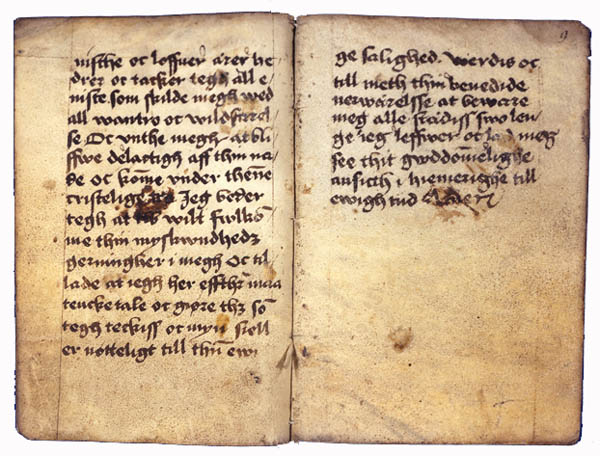 nisthe oc loffuer ærer he
drer oc tacker tegh all e
niste som skilde megh wed
all wantro oc wildfarel
se Oc vnthe megh at bli
ffwe delactigh aff thin na
de oc kōme vnder thēne
cristelige Jeg beder
tegh at wilt fulkō
me thin myskwndhedz
gerningher i megh Oc til
lade at iegh her effthr maa
tencke tale oc gøre thz sō
tegh teckiss oc myn siæll
er nøtteligt till thin ewi
9
ge salighed. Werdis oc
till meth thin benedide
nerwærelsse at beware
meg alle stædiss swo len
ge ieg leffwer oc lad meg
see thit gwddōmelighe
ansicth i hiemerighe till
ewigh tiid